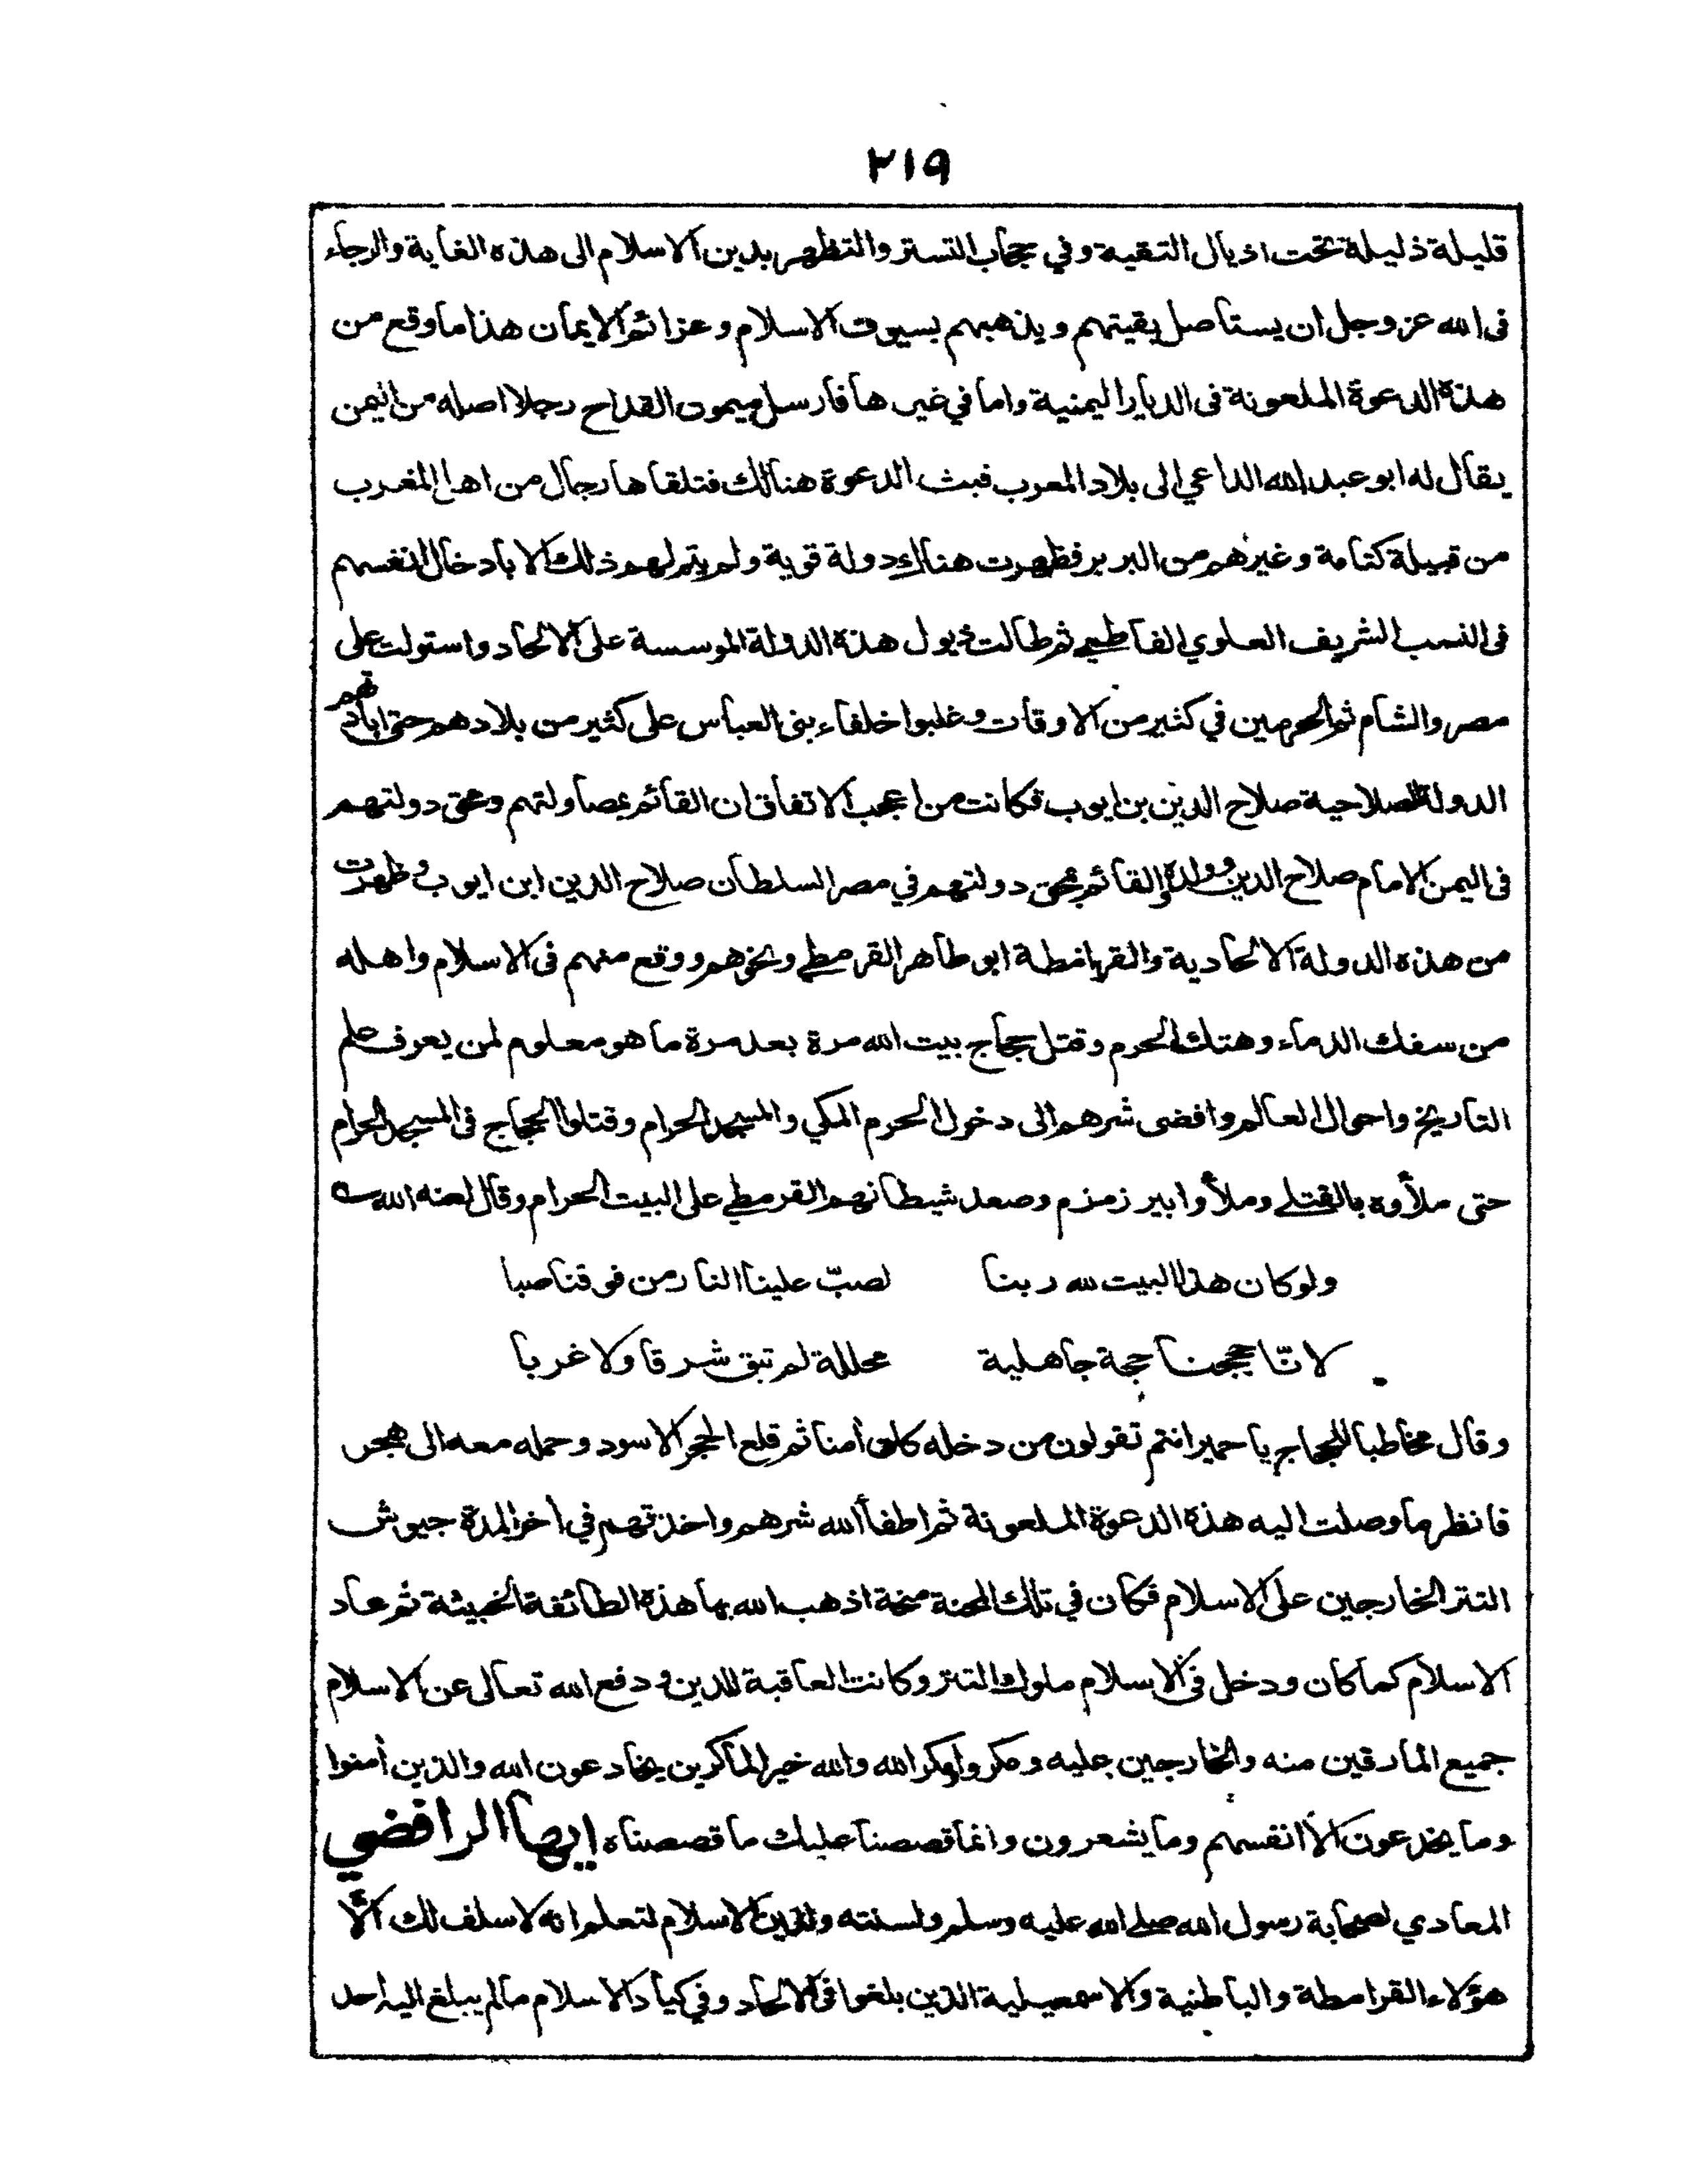 ٢١٩
قليلة ذليلة تحت اذيال التقية وفي حجاب التستر والتظهر بدين الاسلام الى هذه الغاية والرجاء
فى الله عز وجل ان يستأصل بقيتهم ويذهبهم بسيوف الاسلام وعزائم الايمان هذا ما وقع من
هذه الدعوة الملعونة فى الديار اليمنية واما في غيرها فارسل ميمون القداح رجلا اصله من اليمن
يقال له ابو عبد الله الداعي الى بلاد المغرب فبث الدعوة هنالك فتلقاها رجال من اهل المغرب
من قبيلة كتامة وغيرهم من البربر فظهرت هناك دولة قوية ولم يتم لهم ذلك الا بادخال انفسهم
فى النسب الشريف العلوي الفاطمي ثم طالت ذيول هذه الدولة الموسسة على الالحاد واستولت على
مصر والشام ثم الحرمين في كثير من الاوقات وغلبوا خلفاء بنى العباس على كثير من بلادهم حتى ابادتهم
الدولة الصلاحية صلاح الدين بن ايوب فكانت من اعجب الاتفاق ان القائم بمصاولتهم ومحق دولتهم
فى اليمن الامام صلاح الدين وولده والقائم بمحق دولتهم في مصر السلطان صلاح الدين ابن ايوب وظهرت
من هذه الدولة الالحادية والقرامطة ابو طاهر القرمطي ونحوهم ووقع منهم فى الاسلام واهله
من سفك الدماء وهتك الحرم وقتل حجاج بيت الله مرة بعد مرة ما هو معلوم لمن يعرف علم
التاريخ واحوال العالم وافضى شرهم الى دخول الحرم المكي والمسجد الحرام وقتلوا الحجاج فى المسجد الحرام
حتى ملأوه بالقتلى وملأوا بير زمزم وصعد شيطانهم القرمطي على البيت الحرام وقال لعنه الله
ولو كان هذا البيت لله ربنا لصبّ علينا النار من فوقنا صبا
لانّا حججنا حجة جاهلية محللة لم تبق شرقا ولا غربا
وقال مخاطبا للحجاج يا حمير انتم تقولون من دخله كان أمنا ثم قلع الحجر الاسود وحمله معه الى هجر
فانظر ما وصلت اليه هذه الدعوة الملعونة ثم اطفأ الله شرهم واخذتهم في أخر المدة جيوش
التتر الخارجين على الاسلام فكان في تلك المحنة منحة اذهب الله بها هذه الطائفة الخبيثة ثم عاد
الاسلام كما كان ودخل فى الاسلام ملوك التتر وكانت العاقبة للدين ودفع الله تعالى عن الاسلام
جميع المارقين منه والخارجين عليه ومكروا ومكر الله والله خير الماكرين يخادعون الله والذين أمنوا
وما يخدعون الا انفسهم وما يشعرون وانما قصصنا عليك ما قصصناه ايها الرافضي
المعادي لصحابة رسول الله صلى الله عليه وسلم ولسنته ولدين الاسلام لتعلم انه لا سلف لك الا
هؤلاء القرامطة والباطنية والاسمعيلية الذين بلغوا فى الالحاد وفي كياد الاسلام ما لم يبلغ اليه احد